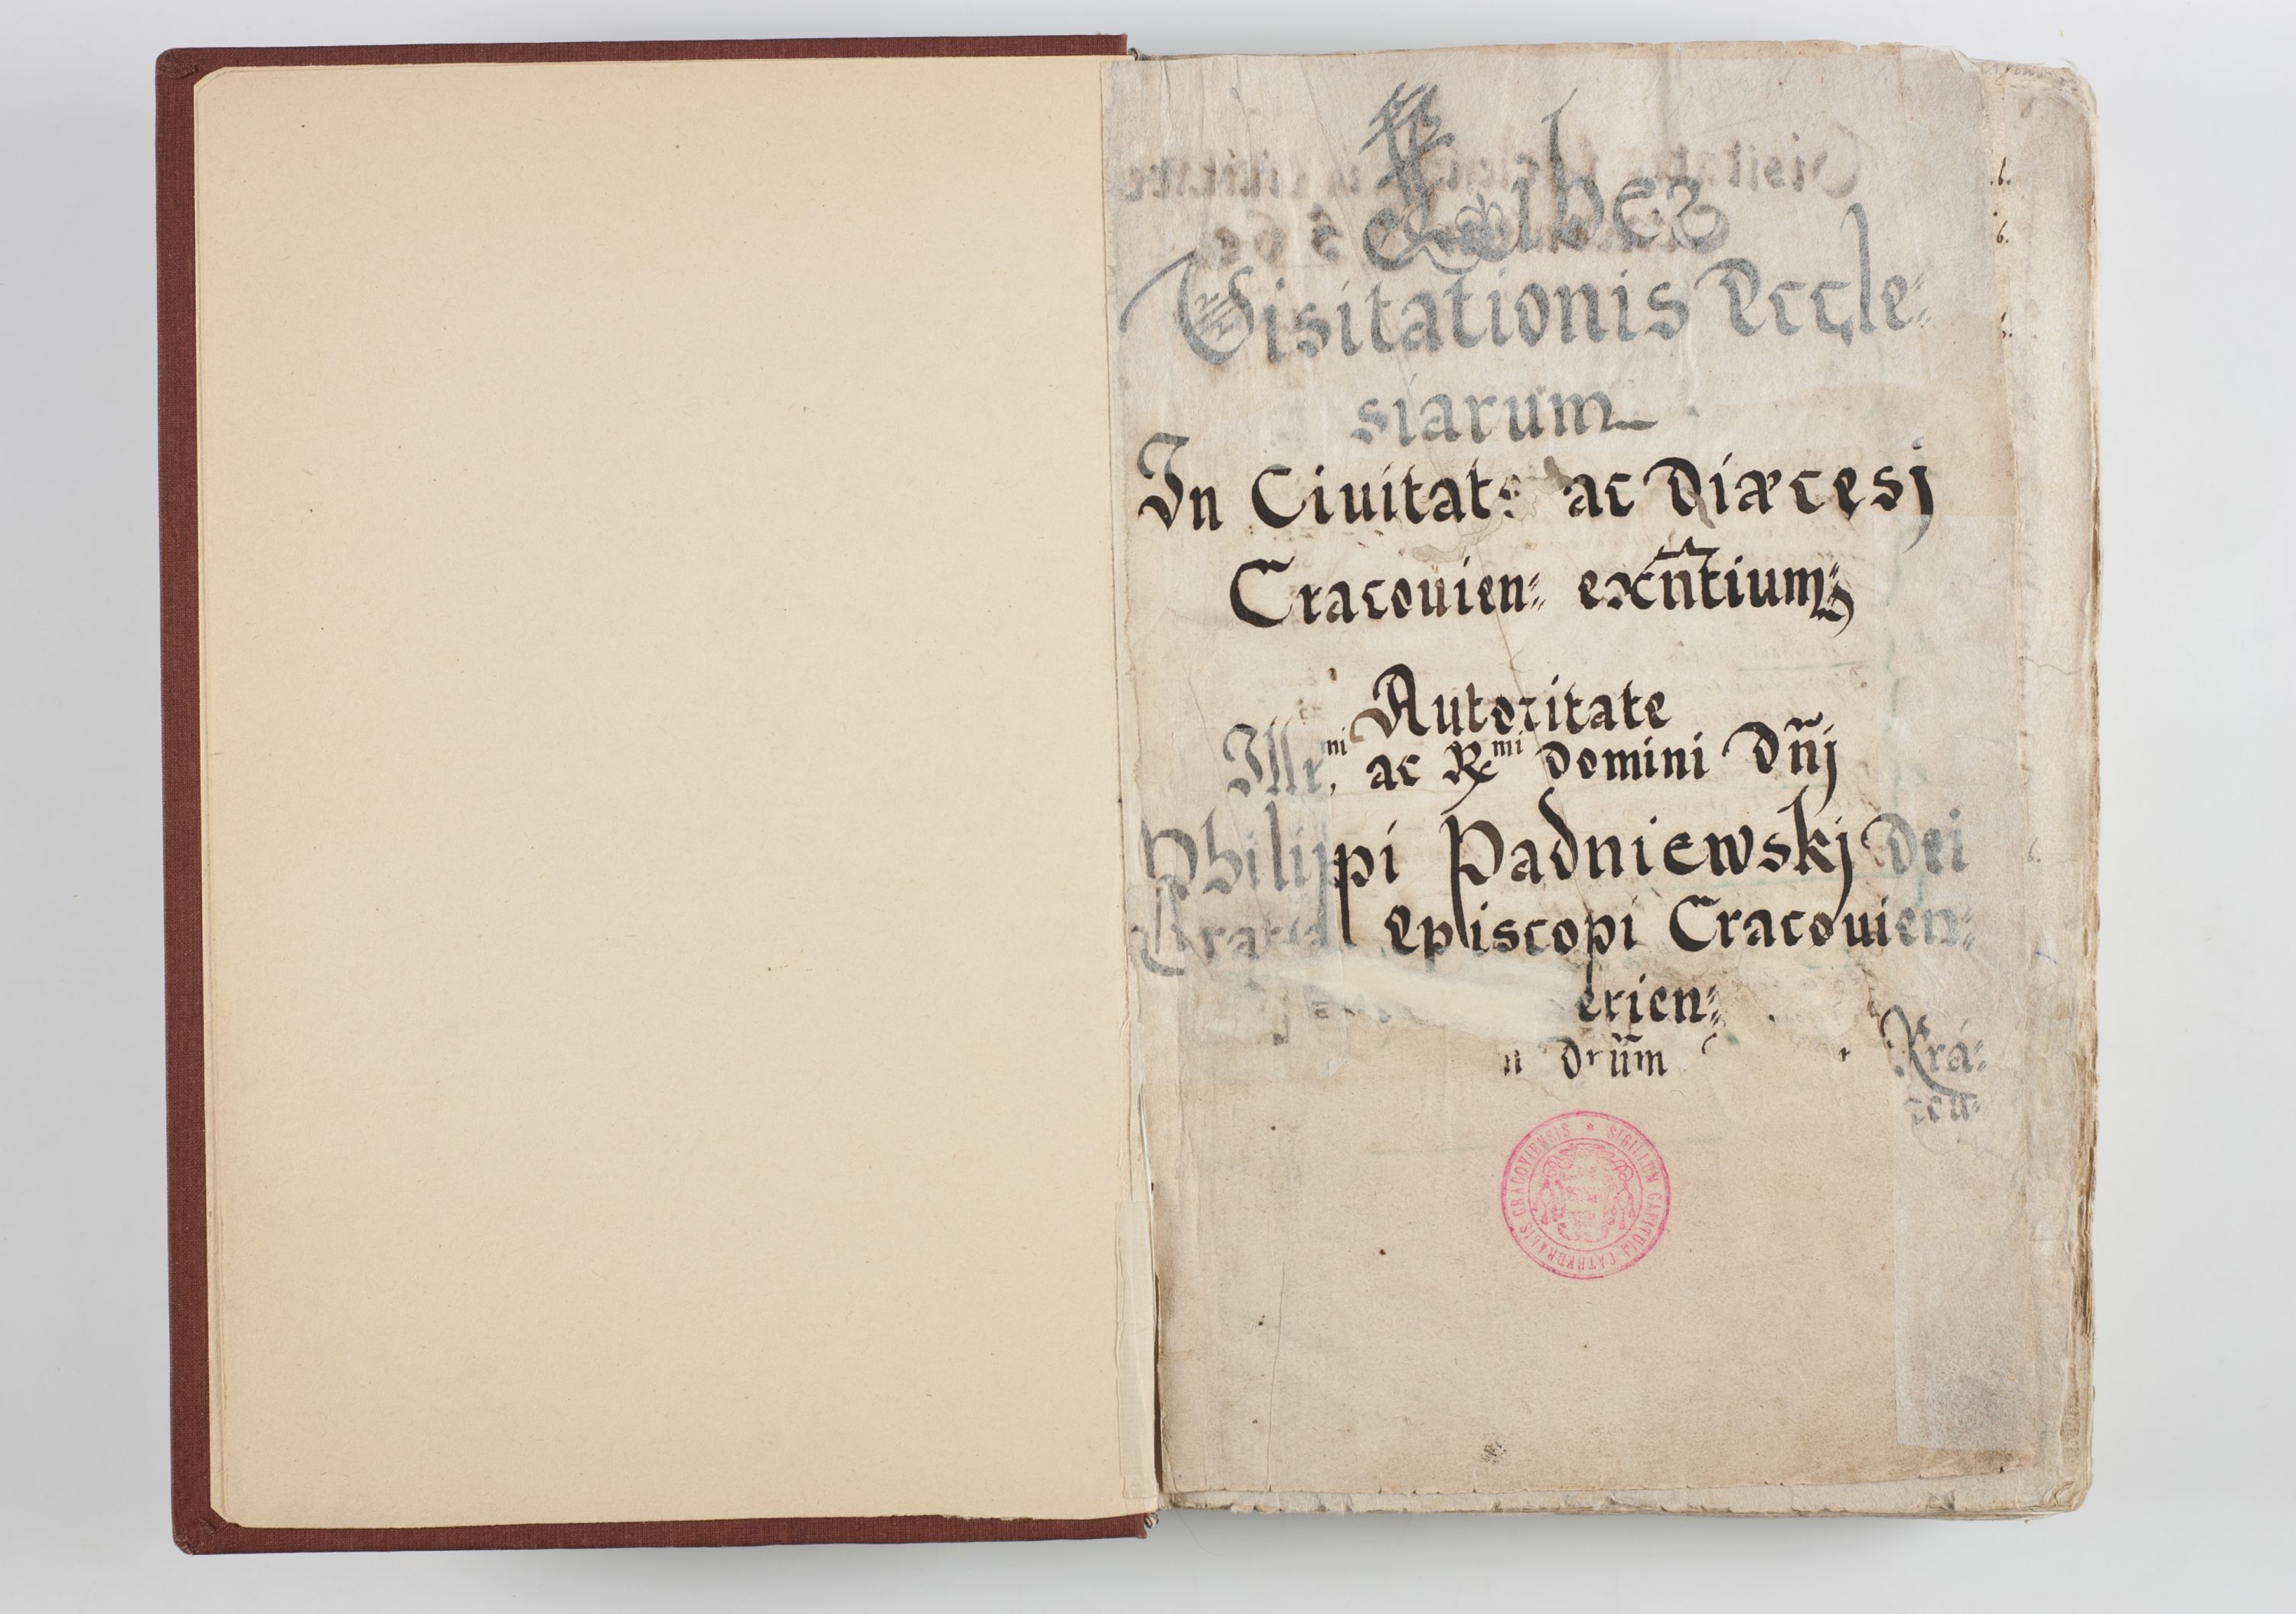 Liber
Visitationis Eccle⸗
siarum
In Ciuitate ac Diæcesj
Cracouien⸗ exn̄tium
Autoritate
Illr.mi ac Rmi Domini Dn̄j
Philippi Padniewskj Dei
Gratia Episcopi Cracouien⸗
erien⸗
n Drūm
Kra⸗
SIGILLUM CAPITULI CATHEDRALIS CRACOVIENSIS